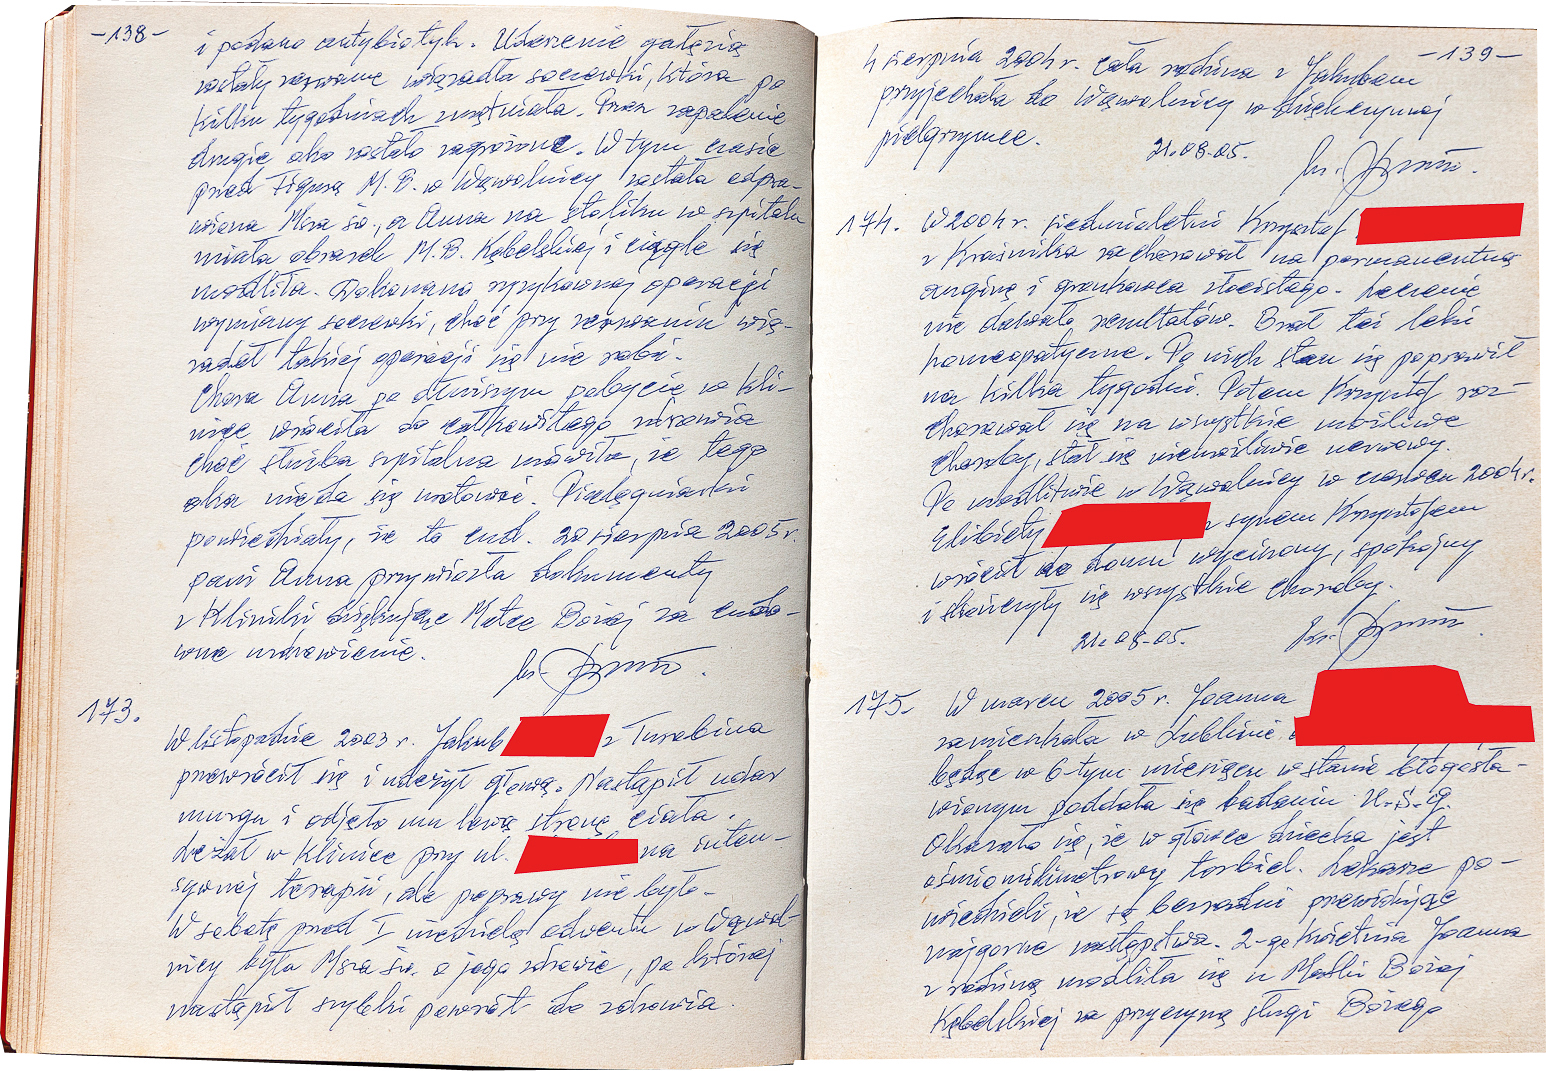 -138-
i podano antybiotyk. Uderzenie gałęzią
zostały zerwane wiązadła soczewki, która po
kilku tygodniach zmętniała. Przez zapalenie
drugie oko zostało zagrożone. W tym czasie
przed Figurą M.B. w Wąwolnicy została odpra-
wiona Msza św., a Anna na stoliku w szpitalu
miała obrazek M.B. Kębelskiej i ciągle się
modliła. Dokonano ryzykownej operacji
wymiany soczewki, choć przy zerwaniu wią-
zadeł takiej operacji się nie robi.
Chora Anna po dłuższym pobycie w kli-
nice wróciła do całkowitego zdrowia
choć służba szpitalna mówiła, że tego
oka nie da się uratować. Pielęgniarki
powiedziały, że to cud. 20 sierpnia 2005 r.
pani Anna przywiozła dokumenty
z Kliniki dziękując Matce Bożej za cudo-
wne uzdrowienie.
ks.
173.
W listopadzie 2003 r. Jakub z Turobina
przewrócił się i uderzył głową. Nastąpił udar
mózgu i odjęło mu lewą stronę ciała.
Leżał w Klinice przy ul. na inten-
sywnej terapii, ale poprawy nie było.
W sobotę przed I niedzielą adwentu w Wąwol-
nicy była Msza św. o jego zdrowie, po której
nastąpił szybki powrót do zdrowia.
-139-
4 sierpnia 2004 r. cała rodzina z Jakubem
przyjechała do Wąwolnicy w dziękczynnej
pielgrzymce.
21.08.05.
ks.
174. W 2004 r. siedmioletni Krzysztof
z Kraśnika zachorował na permanentną
anginę i gronkowca złocistego. Leczenie
nie dawało rezultatów. Brał też leki
homeopatyczne. Po nich stan się poprawił
na kilka tygodni. Potem Krzysztof roz-
chorował się na wszystkie możliwe
choroby, stał się niemożliwie nerwowy.
Po modlitwie w Wąwolnicy w czerwcu 2004 r.
Elżbiety z synem Krzysztofem
wrócił do domu wyciszony, spokojny
i skończyły się wszystkie choroby.
21.08.05.
ks.
175. W marcu 2005 r. Joanna
zamieszkała w Lublinie
będąc w 6-tym miesiącu w stanie błogosła-
wionym poddała się badaniu U.S.G.
Okazało się, że w główce dziecka jest
ośmiomilimetrowy torbiel. Lekarze po-
wiedzieli, że są bezradni przewidując
najgorsze następstwa. 2-go kwietnia Joanna
z rodziną modliła się u Matki Bożej
Kębelskiej za przyczyną sługi Bożego